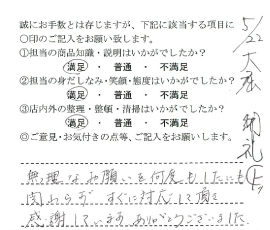 誠にお手数とは存じますが、下記に該当する項目に
○印のご記入をお願い致します。
①担当の商品知識・説明はいかがでしたか?
満足 ・ 普通 ・ 不満足
②担当の身だしなみ・笑顔・態度はいかがでしたか?
満足 ・ 普通 ・ 不満足
③店内外の整理・整頓・清掃はいかがでしたか?
満足 ・ 普通 ・ 不満足
◎ご意見・お気付きの点等、ご記入をお願いします。
無理なお願いを何度もしたにも
関わらず すぐに対応して頂き
感謝しています ありがとうございました
5/22
御礼